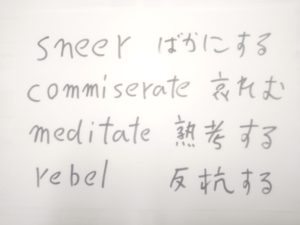 sneer ばかにする
commiserate 哀れむ
meditate 熟考する
rebel 反抗する